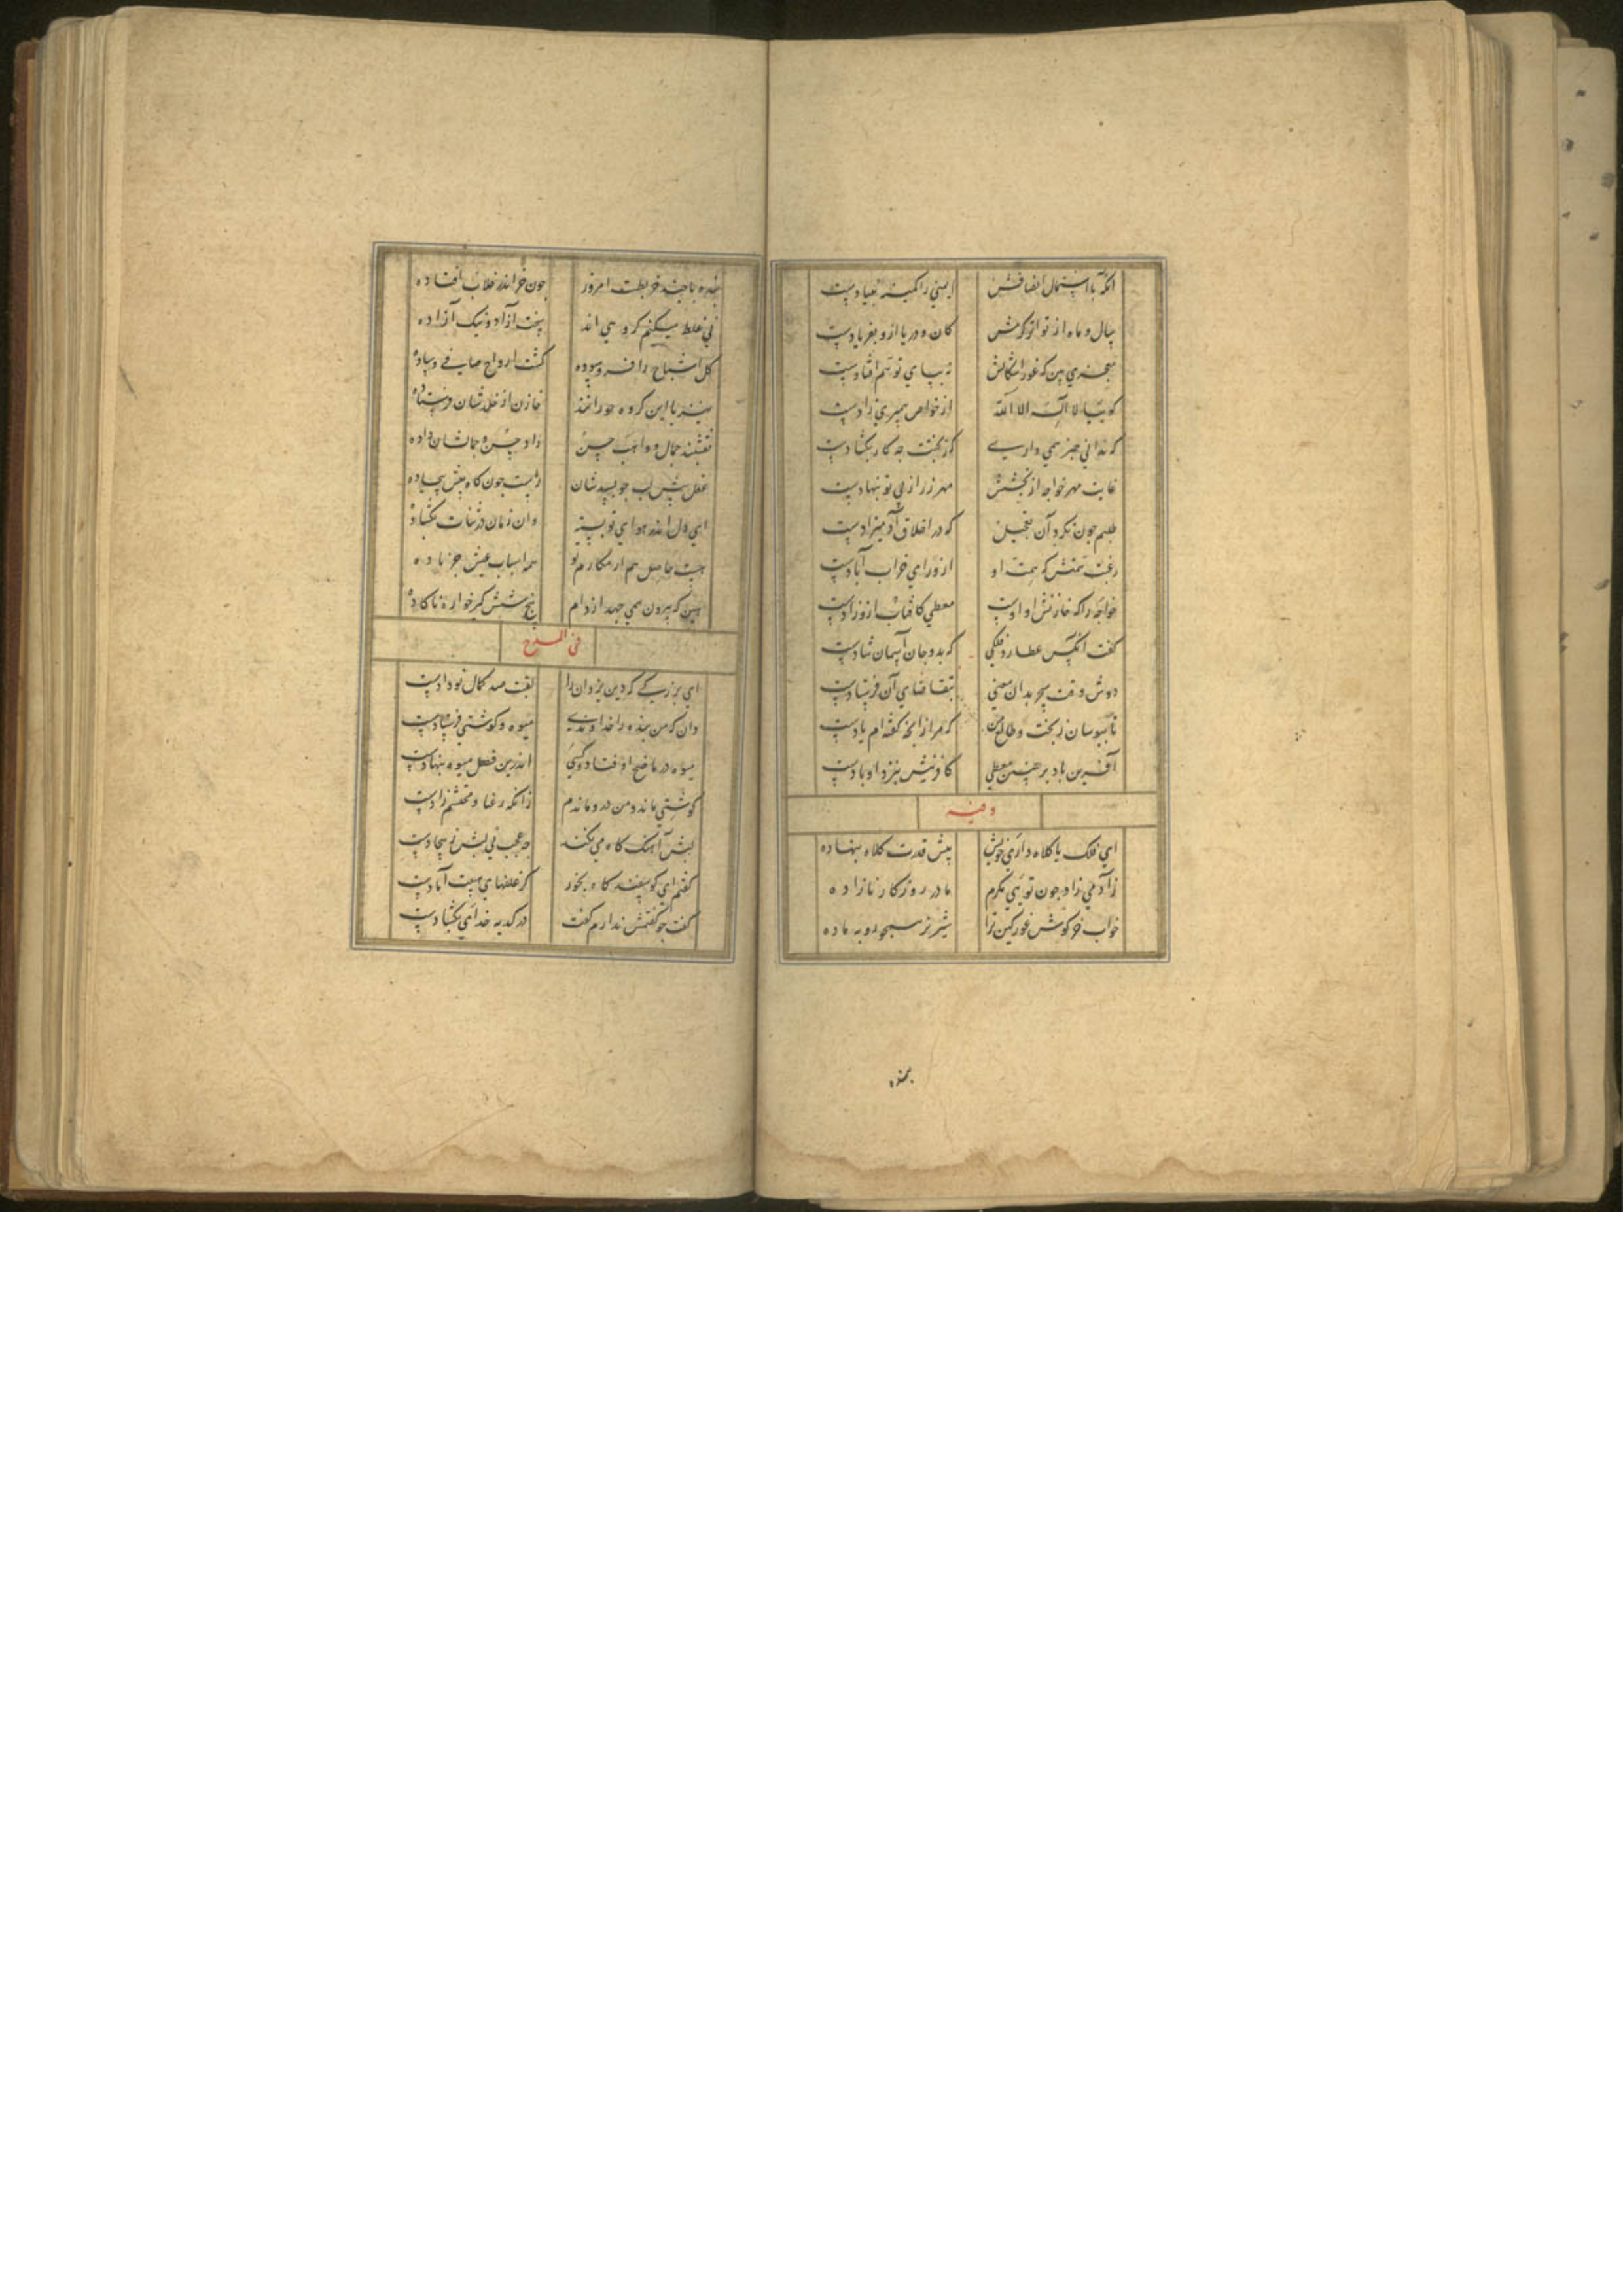 ایمنی را کمینه بنیادیست
بسال و ماه از تواتر کرمش
کان و دریا ازو بفریادیست
نه بپای توهم افتادیست
کوییا لا اله الا الله
از خواص پیمبری زادیست
که ندانی خبر همی داری
کز بخت چه کار بکشادیست
غایت مهر خواجه از بخشش
مهر زر از پی تو بنهادیست
طلبم چون نکرد آن تعجیل
که در اخلاق آدمیزادیست
رغبت همتش که همت او
از ورای خراب آبادیست
خواجه را که خازنش او اوست
معطی کافتاب ازو رادیست
کفت آنکس عطارد فلکی
که بدو جان آسمان شادیست
دوش وقت سحر بدان معنی
بتقاضای آن فرستادیست
که مر از آنچه کفته ام یادیست
آفرین باد بر چنین معطی
کافرینش بنزد او بادیست
و فیه
ای فلک با کلاه داری خویش
پیش قدرت کلاه بنهاده
ز آدمی زاد چون تویی مکرم
مادر روزکار نازاده
خواب خرکوش غور کین ترا
شیر نر سخره روبه ماده
بمنده
بنده با چند خربطت امروز
چون خر اندر خلاب افتاده
نی غلط میکنم کروهی اند
پخت آزاد و نیک آزاده
کل اشباح را فرسوده
کشت ارواح صافی و ساده
سنبر با این کروه حورانند
خازن از خلدشان فرستاده
نقشبند جمال و واهب حسن
داد حسن و جمالشان داده
عقل پیش لب چو بسدشان
راست چون کاه پیش بیجاده
ای دل اندر هوای تو بسته
وان زبان در ثنات بکشاده
هست حاصل هم از مکارم تو
همه اسباب عیش جز باده
هین که بیرون همی جهد از دام
پنج شش کیر خواره ناکاده
فی المدح
ای بزرکی که دین یزدان را
لقبت صد کمال نو دادست
دان که من بنده را خداوندی
میوه و کوشتی فرستادست
اندرین فصل میوه بنهادست
کوشتی ماند و من درو ماندم
زانکه رعنا و محتشم زادست
لبش آهنک کاه می نکند
چه عجب نی لبش ز بیجادست
کفتم ای کوسفند کاه بخور
کز علفهای هیئت آبادست
کفت جو کفتمش ندارم کفت
در کدیه خدای بکشادست